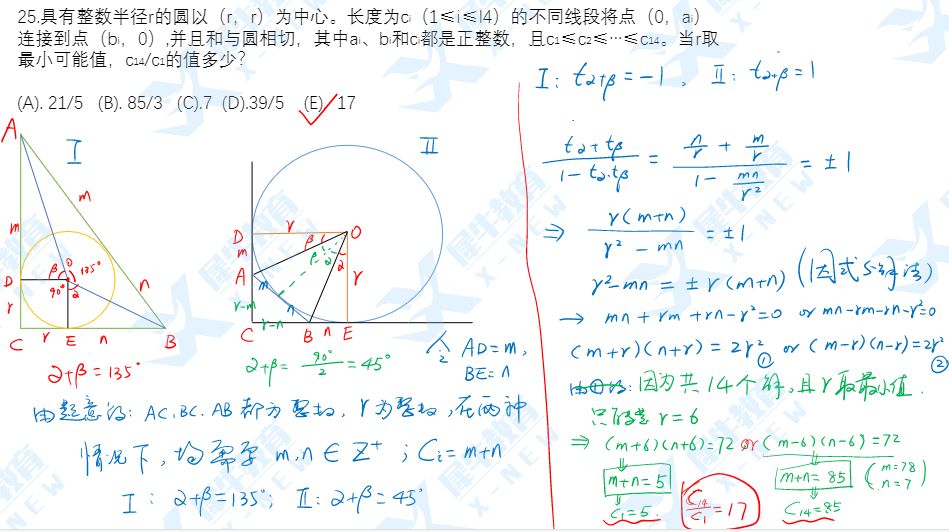 25.具有整数半径r的圆以（r，r）为中心。长度为cᵢ（1≤i≤l4）的不同线段将点（0，aᵢ）
连接到点（bᵢ，0）,并且和与圆相切，其中aᵢ、bᵢ和cᵢ都是正整数，且c₁≤c₂≤⋯≤c₁₄。当r取
最小可能值，c₁₄/c₁的值多少?
(A). 21/5 (B). 85/3 (C).7 (D).39/5 (E) 17
A
I
m
m
D
β
O
135°
90°
α
n
r
C
r
E
n
B
α+β=135°
II
D
r
O
m
β
α
A
m
r
r-m
n
r-n
C
B
n
E
α+β= 90°/2 =45°
令 AD=m,
BE=n
由题意得: AC.BC.AB 都为整数, r为整数, 在两种
情况下, 均需要 m,n∈Z⁺ ; Cᵢ=m+n
I : α+β=135°; II: α+β=45°
I: tα+β=-1 , II: tα+β=1
(tα+tβ)/(1-tα·tβ) = (n/r + m/r)/(1 - mn/r²) = ±1
⇒ r(m+n)/(r²-mn) = ±1
r²-mn = ±r(m+n) (因式分解法)
→ mn+rm+rn-r²=0 or mn-rm-rn-r²=0
(m+r)(n+r)=2r² ① or (m-r)(n-r)=2r² ②
因为共14个解,且r取最小值.
只能是 r=6
⇒ (m+6)(n+6)=72 or (m-6)(n-6)=72
m+n=5
m+n=85
(m=78
n=7)
C₁=5.
C₁₄/C₁=17
C₁₄=85
犀牛教育
X-NEW